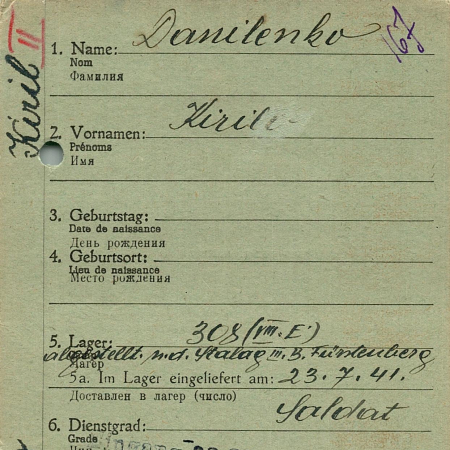 Kiril II
167
1. Name: Danilenko
Nom
Фамилия
2. Vornamen: Kiril
Prénoms
Имя
3. Geburtstag:
Date de naissance
День рождения
4. Geburtsort:
Lieu de naissance
Место рождения
5. Lager: 308 (VIII. E.)
abgestellt. n.d. Stalag III. B. Fürstenberg
Лагер
5a. Im Lager eingeliefert am: 23.7.41.
Доставлен в лагер (число)
Saldat
6. Dienstgrad:
Grade